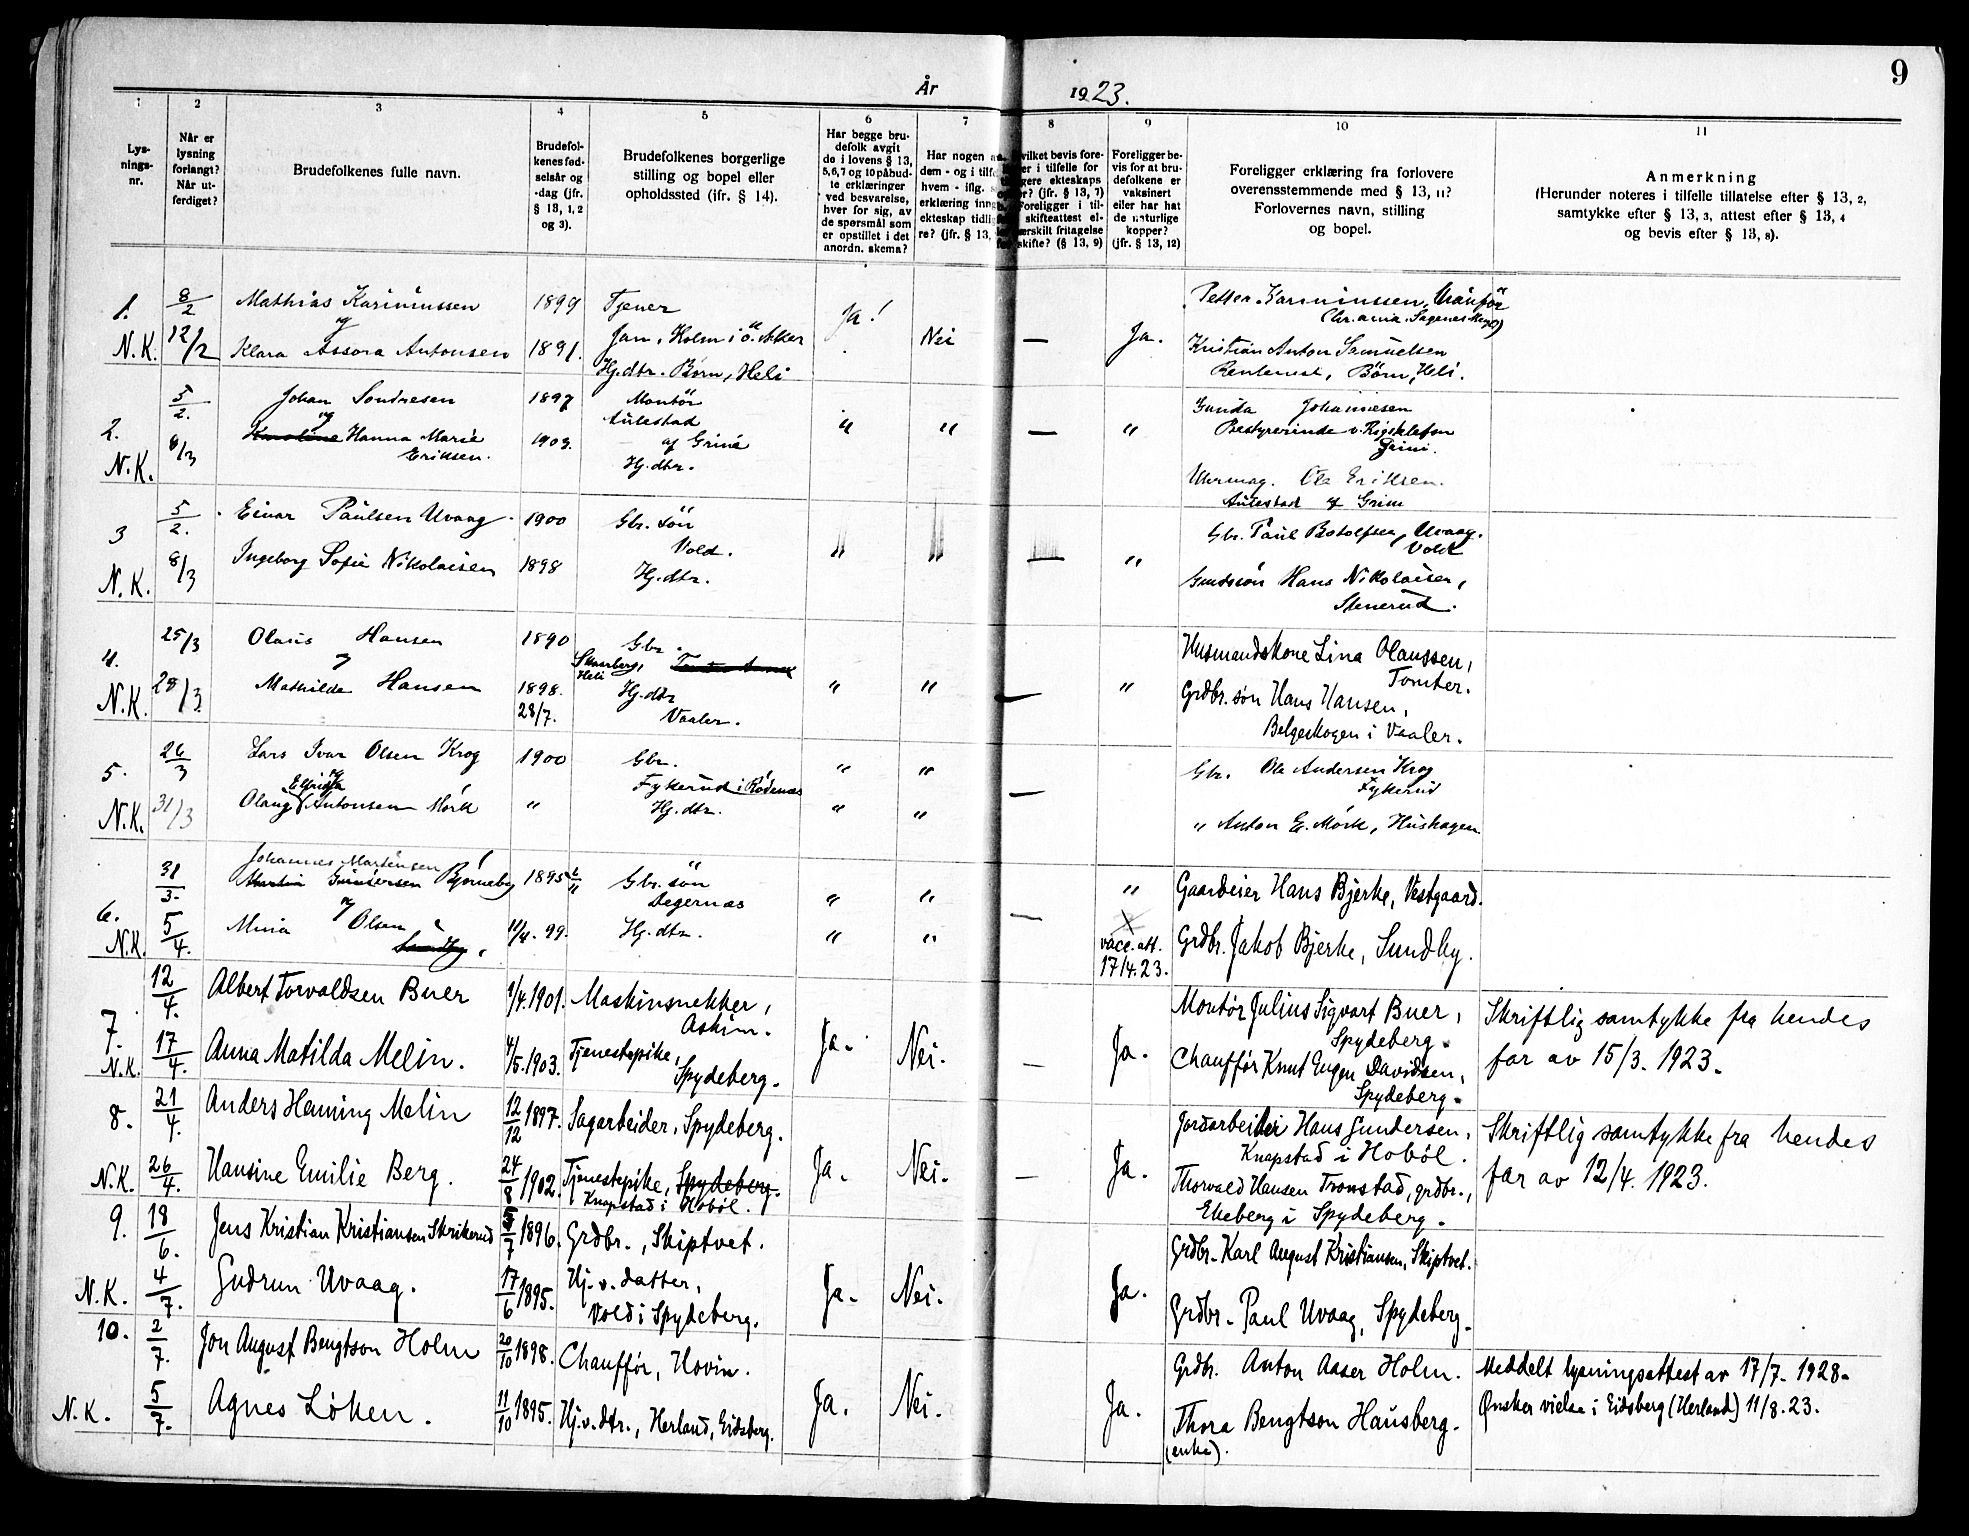 9
År 1923.
1 2 3 4 5 6 7 8 9 10 11
Lys-
nings-
nr.
Når er
lysning
forlangt?
Når ut-
ferdiget?
Brudefolkenes fulle navn.
Brudefol-
kenes fød-
selsår og
-dag (jfr.
§ 13, 1, 2
og 3).
Brudefolkenes borgerlige
stilling og bopel eller
opholdssted (jfr. § 14).
Har begge bru-
defolk avgit
de i lovens § 13,
5, 6, 7 og 10 påbud-
te erklæringer
ved besvarelse,
hver for sig, av
de spørsmål som
er opstillet i det
anordn. skema?
Har nogen a
dem - og i tilf
hvem - iflg.
erklæring inng
ekteskap tidli
re? (jfr. § 13,
vilket bevis fore-
er i tilfelle for
gere ekteskaps
r? (jfr. § 13, 7)
Foreligger i til-
skifteattest el-
ærskilt fritagelse
skifte? (§ 13, 9)
Foreligger be-
vis for at bru-
defolkene er
vaksinert
eller har hat
de naturlige
kopper?
(jfr. § 13, 12)
Foreligger erklæring fra forlovere
overensstemmende med § 13, 11?
Forlovernes navn, stilling
og bopel.
Anmerkning
(Herunder noteres i tilfelle tillatelse efter § 13, 2,
samtykke efter § 13, 3, attest efter § 13, 4
og bevis efter § 13, 8).
1. 8/2 Mathias Kariniussen 1899 Tjener
Jan. Holm i ö. Aker Ja! Nei — Ja.
N.K. 12/2 og Klara Assora Antonsen 1891. Hj.dtr. Børn, Heli
Kristian Anton Samuelsen
Rentenist, Börn, Heli.
2. 5/2. Johan Sondresen 1897 Montör
Aulestad
af Grini " " — "
N.K. 8/3 og Karoline Hanna Marie
Eriksen. 1903. Hj.dtr.
Gunda Johannesen
Bestyrerinde v. Rigstelefon
Grini.
Uhrmag. Ole Eriksen.
Aulestad af Grini
3 5/2. Einar Paulsen Uvaag 1900 Gbr. sön
Vold. " " — "
N.K. 8/3 Ingeborg Sofie Nikolaisen 1898 Hj.dtr.
Gbr. Paul Botolfsen, Uvaag.
Vold
Hans Nikolaisen,
Stenerud.
4. 25/3 Olaus Hansen 1890 Gbr.
Skarberg,
Heli " " — "
N.K. 28/3 og Mathilde Hansen 1898.
28/7. Hj.dtr
Vaaler.
Husmandskone Lina Olaussen,
Tomter.
Grdbr. søn Hans Hansen,
Belgeskogen i Vaaler.
5. 26/3 Lars Ivar Olsen Krog 1900 Gbr.
Fykerud i Rödenes " " —
N.K. 31/3 og Olaug Elfrida Antonsen Mörk " Hj.dtr. " "
Gbr. Ole Andersen Krog
Fykerud
" Anton E. Mörk, Huskagen
6. 31/3. Johannes Martinsen
Martin Gundersen Bjørneby 1895 2/11 Gbr. sön
Degernæs " " — "
N.K. 5/4. og Mina Olsen
Sundby. 11/4. 99. Hj.dtr. " "
vacc. att.
17/4. 23.
Gaardeier Hans Bjerke, Vestgaard.
Grdbr. Jakob Bjerke, Sundby.
7. 12/4. Albert Torvaldsen Buer 1/4. 1901. Maskinsnekker,
Askim. Ja. Nei. — Ja.
N.K. 17/4. Anna Matilda Melin. 4/5. 1903. Tjenestepike,
Spydeberg.
Montør Julius Sigvart Buer,
Spydeberg.
Chauffør Knut Eugen Davidsen,
Spydeberg.
Skriftlig samtykke fra hendes
far av 15/3. 1923.
8. 21/4. Anders Hening Melin 12/12 1897. Sagarbeider, Spydeberg.
N.K. 26/4. Hansine Emilie Berg. 24/8 1902. Tjenestepike, Spydeberg.
Knapstad i Hobøl. Ja. Nei. — Ja.
Jordarbeider Hans Gundersen,
Knapstad i Hobøl.
Thorvald Hansen Tronstad, grdbr.,
Ekeberg i Spydeberg.
Skriftlig samtykke fra hendes
far av 12/4. 1923.
9. 18/6. Jens Kristian Kristiansen Skrikerud 5/7 1896. Grdbr., Skiptvet.
N.K. 4/7. Gudrun Uvaag. 17/6 1895. Hj. v. datter,
Vold i Spydeberg. Ja. Nei. Ja.
Grdbr. Karl August Kristiansen, Skiptvet.
Grdbr. Paul Uvaag, Spydeberg.
10. 2/7. Jon August Bengtson Holm 20/10 1898. Chauffør, Hovin.
N.K. 5/7. Agnes Løken. 11/10 1895. Hj.v.dtr., Herland, Eidsberg. Ja. Nei. Ja.
Grdbr. Anton Asser Holm.
Thora Bengtson Hausberg.
(enke).
Meddelt lysningsattest av 17/7. 1928.
Ønsker vielse i Eidsberg (Herland) 11/8. 23.